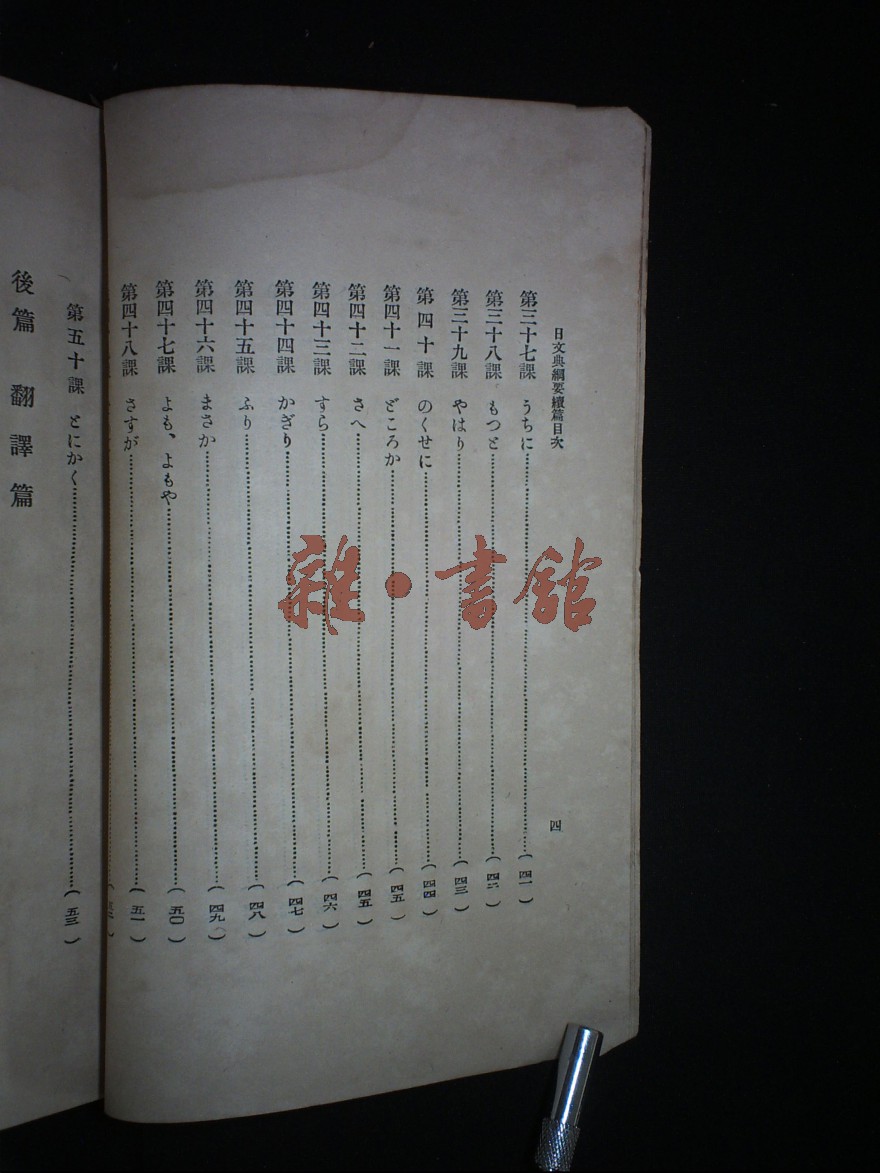 日文典綱要續篇目次
四
第三十七課 うちに……(四一)
第三十八課 もつと……(四二)
第三十九課 やはり……(四三)
第四十課 のくせに……(四四)
第四十一課 どころか……(四五)
第四十二課 さへ……(四五)
第四十三課 すら……(四六)
第四十四課 かぎり……(四七)
第四十五課 ふり……(四八)
第四十六課 まさか……(四九)
第四十七課 よも、よもや……(五〇)
第四十八課 さすが……(五一)
第五十課 とにかく……(五三)
後篇 翻譯篇
雜·書館